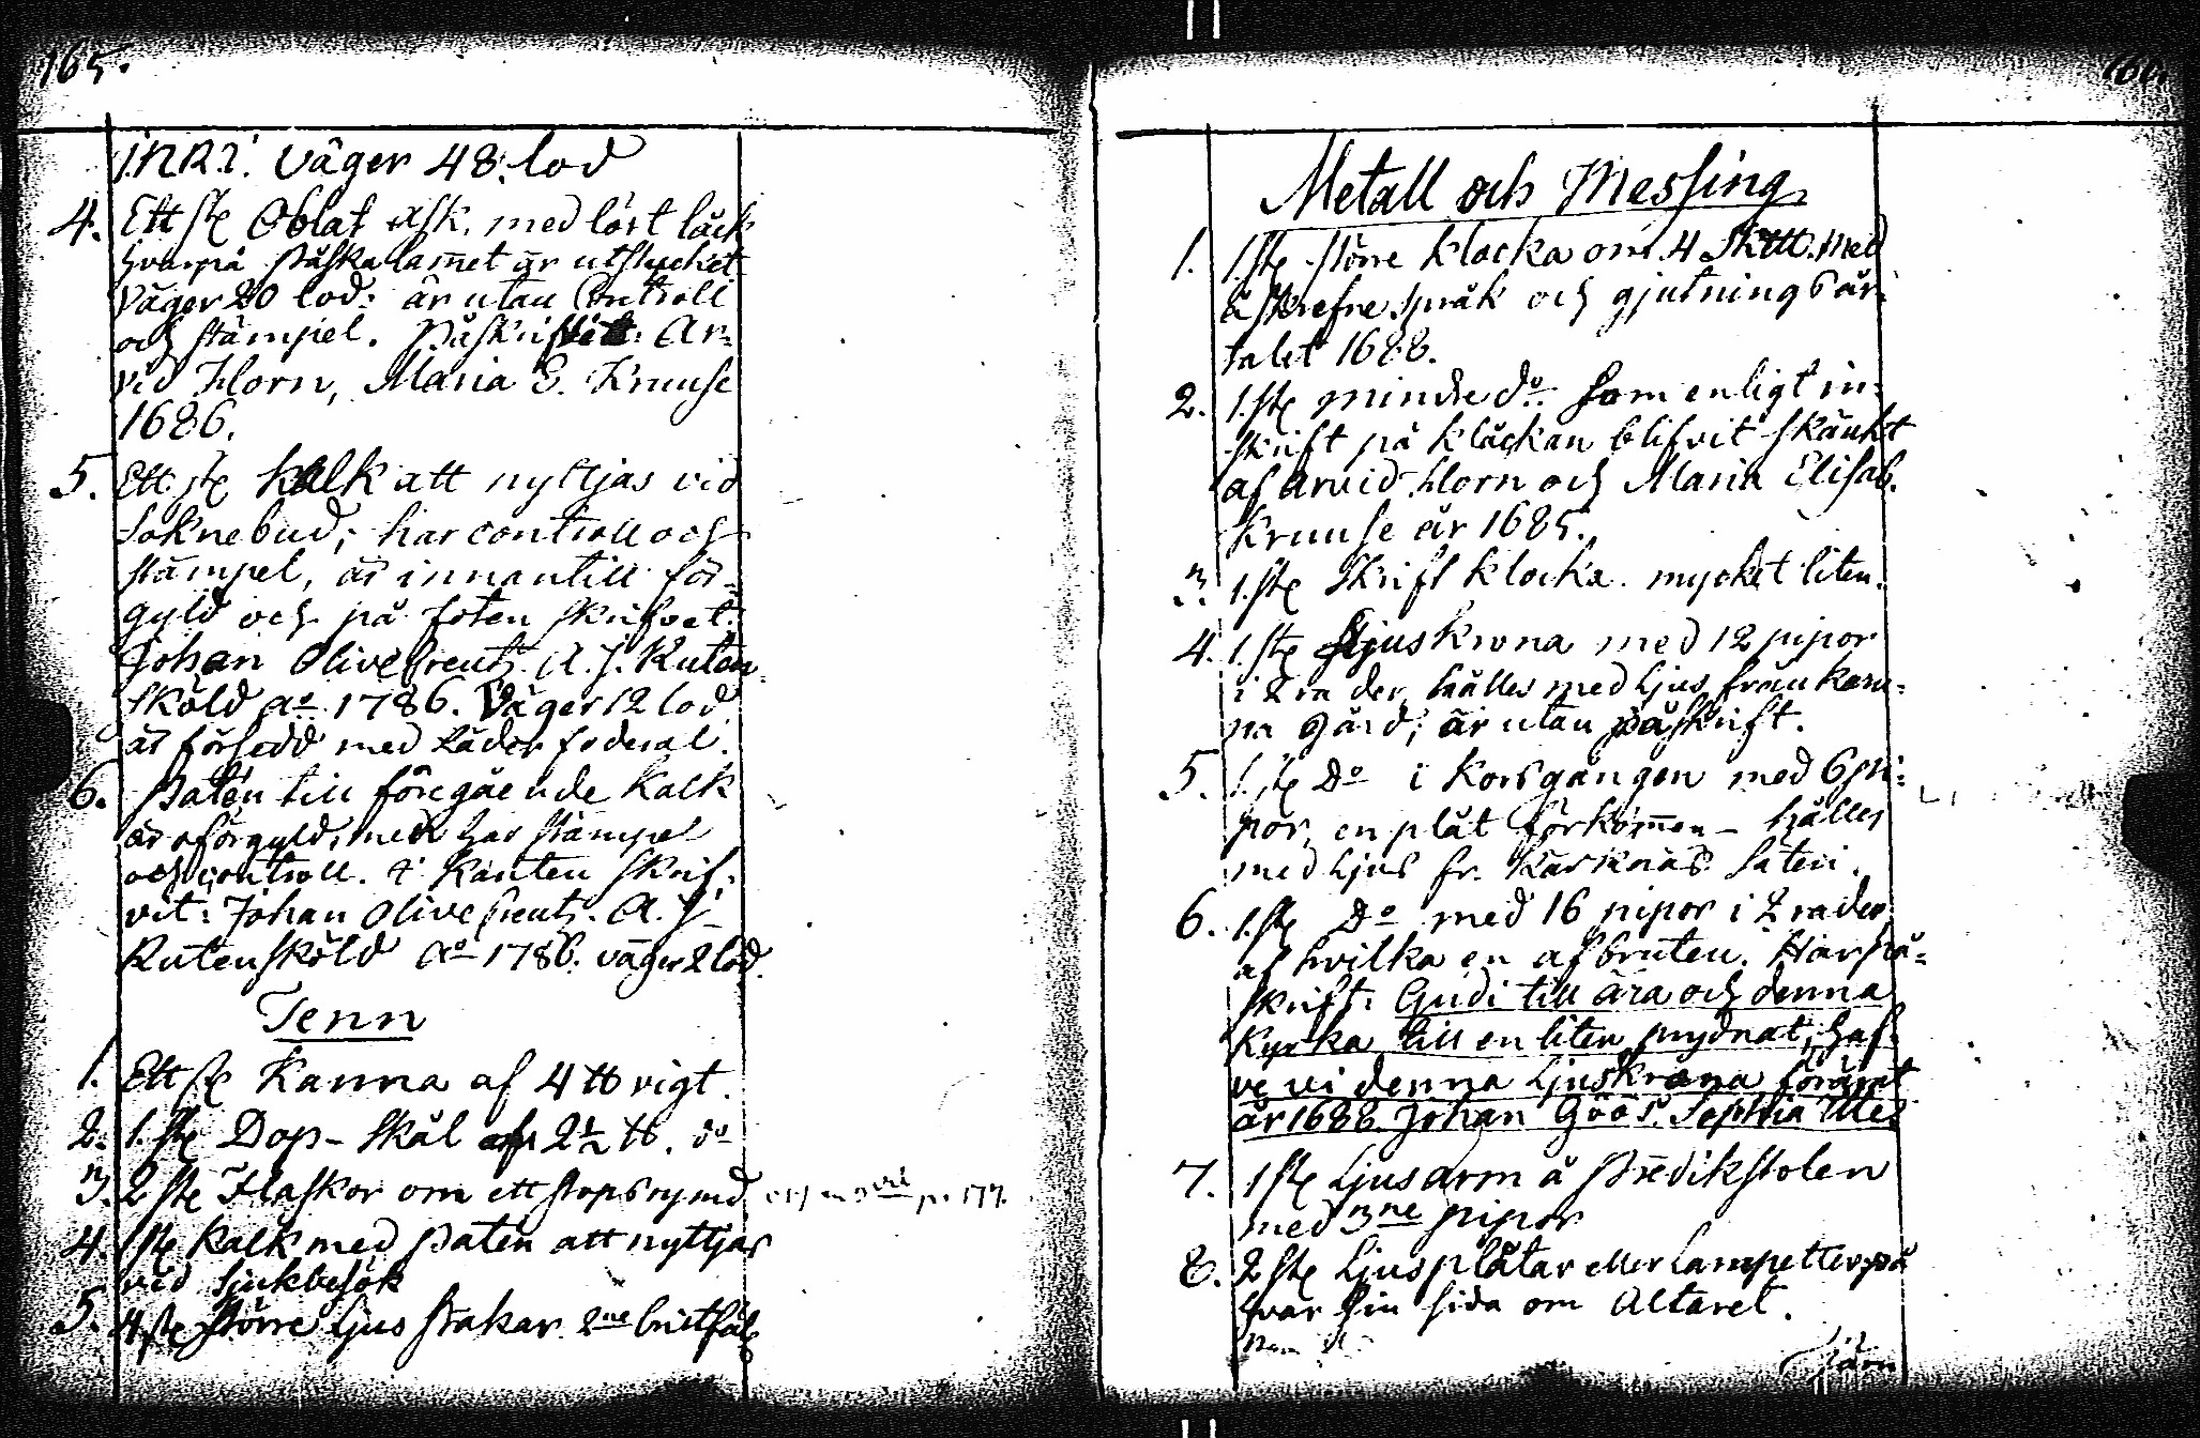 165.
I.N.R.I. väger 48. lod
4. Ett st. Oblat ask, med löst låck
hvarpå Påska lam̄et är utstucket
väger 20 lod: är utan Controll
och stämpel. Påskrifvit: Ar-
vid Horn, Maria E. Kruuse
1686.
5. Ett st. kalk att nyttjas vid
Soknebud; har controll och
stämpel, är innantill för-
gyld och på foten skrifvet:
Johan Olivecreutz. A. J. Ruten-
sköld Ao 1786. Väger 12 lod
är försedd med Läder foderal.
6. Paten till föregående kalk
är oförgyld, men har stämpel
och controll. i kanten skrif-
vit: Johan Olivecreutz. A. J.
Rutensköld Ao 1786. väger 2 lod.
Tenn
1. Ett st. Kanna af 4 ℔ vigt.
2. 1. st. Dop-skål af 2½ ℔. do
3. 2 st. Flaskor om ett stops rymd p. 177.
4. 1 st. Kalk med Paten att nyttjas
vid Sjukbesök
5. 4 st. större Ljus stakar. 2ne bristfäl
Metall och Messing
1. 1. st. större klocka om 4 Sk℔. med
åskrefne språk och gjutnings år-
talet 1688.
2. 1. st. mindre do. som enligt in-
skrift på klåckan blifvit skänkt
af Arvid Horn och Maria Elisab.
Kruuse år 1685.
3. 1. st. Skrift klocka. mycket liten.
4. 1. st. Ljuskrona med 12 pipor
i 2 rader, hålles med Ljus från
na Gård; är utan påskrift.
5. 1. st. Do i Korsgången med 6 pi-
por, en plåt förkom̄en – hålles
med Ljus fr. Karsknäs Säteri.
6. 1. st. Do med 16 pipor i 2 rader
af hvilka en afbruten. Har på-
skrift: Gudi till ära och denna
Kyrka till en liten prydnat, haf-
ve vi denna Ljuskrona förärat
år 1688. Johan Göös. Sophia
7. 1 st. Ljusarm å Predikstolen
med 3ne pipor
8. 2 st. Ljusplåtar eller Lampetter på
hvar sin sida om Altaret.
Järn